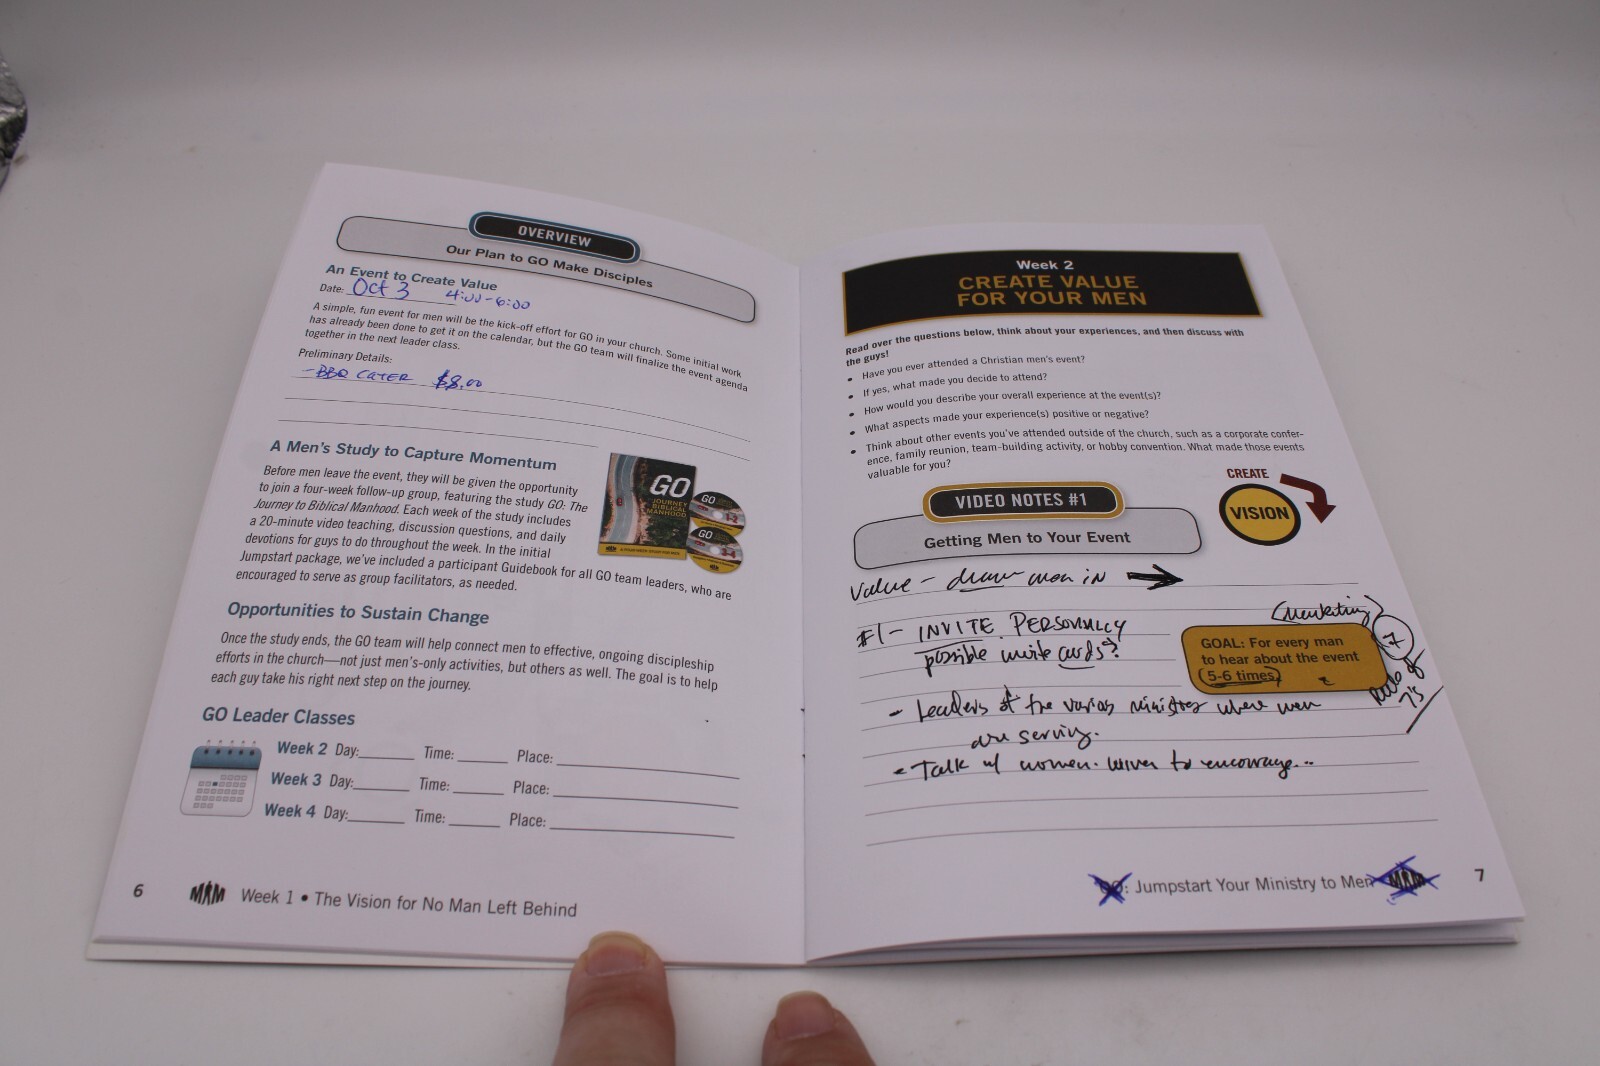 OVERVIEW
Our Plan to GO Make Disciples
An Event to Create Value
Date: Oct 3 4:00-6:00
A simple, fun event for men will be the kick-off effort for GO in your church. Some initial work
has already been done to get it on the calendar, but the GO team will finalize the event agenda
together in the next leader class.
Preliminary Details:
-BBQ CATER $8.00
A Men's Study to Capture Momentum
Before men leave the event, they will be given the opportunity
to join a four-week follow-up group, featuring the study GO: The
Journey to Biblical Manhood. Each week of the study includes
a 20-minute video teaching, discussion questions, and daily
devotions for guys to do throughout the week. In the initial
Jumpstart package, we've included a participant Guidebook for all GO team leaders, who are
encouraged to serve as group facilitators, as needed.
GO
JOURNEY
BIBLICAL
MANHOOD
GO
1-2
GO
3-4
Opportunities to Sustain Change
Once the study ends, the GO team will help connect men to effective, ongoing discipleship
efforts in the church—not just men's-only activities, but others as well. The goal is to help
each guy take his right next step on the journey.
GO Leader Classes
Week 2 Day: Time: Place:
Week 3 Day: Time: Place:
Week 4 Day: Time: Place:
6 MIM Week 1 • The Vision for No Man Left Behind
Week 2
CREATE VALUE
FOR YOUR MEN
Read over the questions below, think about your experiences, and then discuss with
the guys!
• Have you ever attended a Christian men's event?
• If yes, what made you decide to attend?
• How would you describe your overall experience at the event(s)?
• What aspects made your experience(s) positive or negative?
• Think about other events you've attended outside of the church, such as a corporate confer-
ence, family reunion, team-building activity, or hobby convention. What made those events
valuable for you?
CREATE
VISION
VIDEO NOTES #1
Getting Men to Your Event
Value - draw men in →
#1- INVITE PERSONALLY
possible invite cards?
(Marketing)
GOAL: For every man
to hear about the event
(5-6 times)
7
Rule of
7's
- Leaders of the various ministries where men
are serving.
- Talk w/ women. wives to encourage...
GO: Jumpstart Your Ministry to Men MIM 7